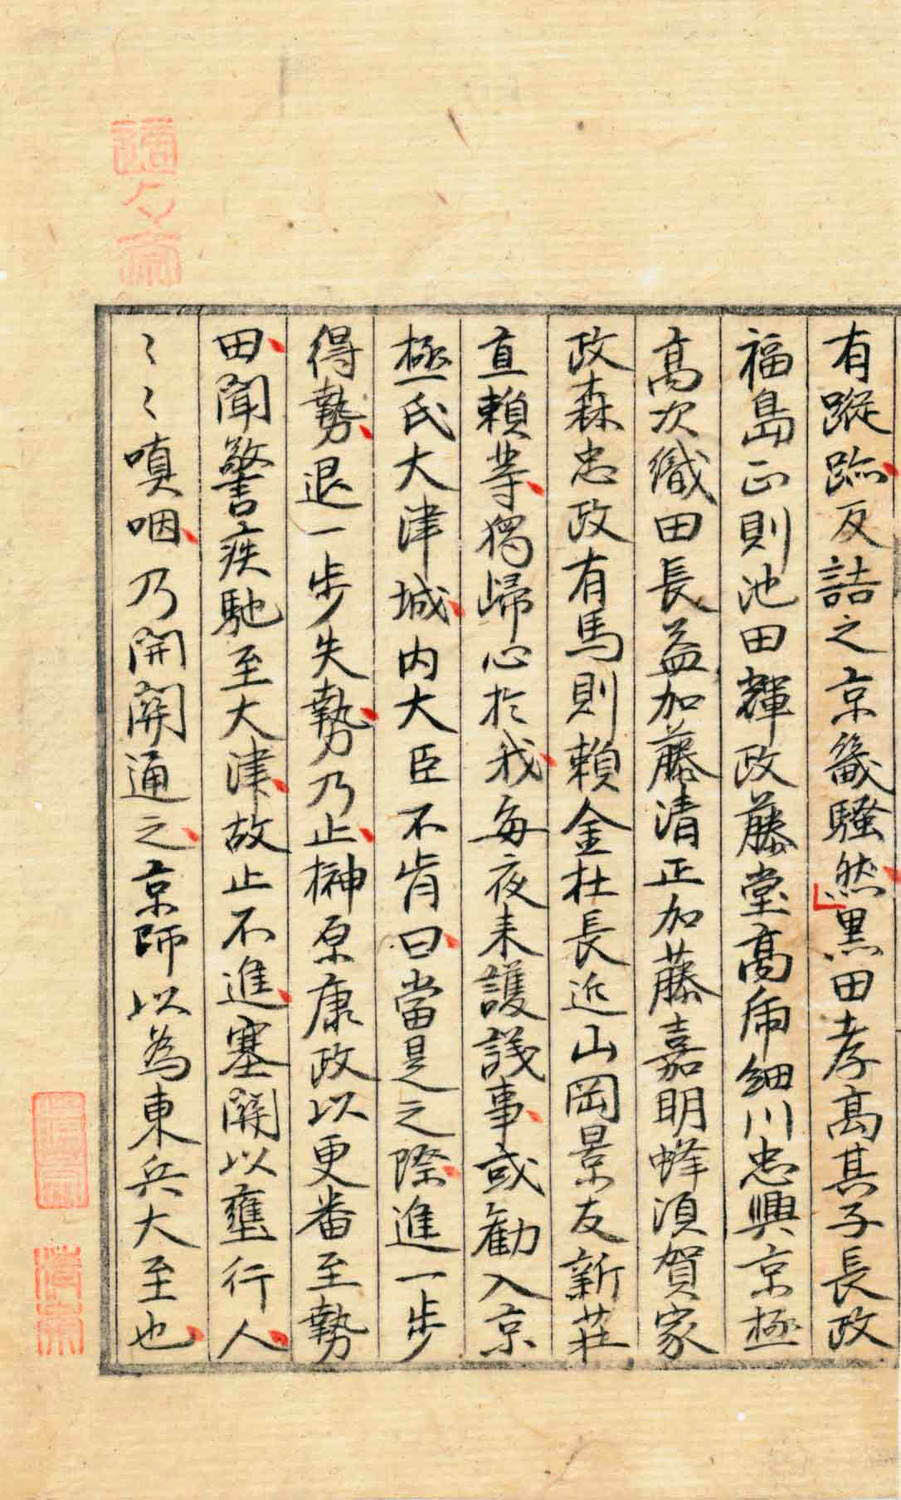 有蹤跡反詰之京畿騷然黒田孝高其子長政
福島正則池田輝政藤堂高乕細川忠興京極
高次織田長益加藤清正加藤嘉明蜂湏賀家
政森忠政有馬則頼金杜長近山岡景友新莊
直頼䓁獨歸心於我每夜来護議事或勸入京
極氏大津城内大臣不肯曰當是之際進一步
得勢退一步失勢乃止榊原康政以更番至勢
田聞警疾馳至大津故止不進塞關以壅行人
〻〻嗔咽乃開關通之京師以為東兵大至也